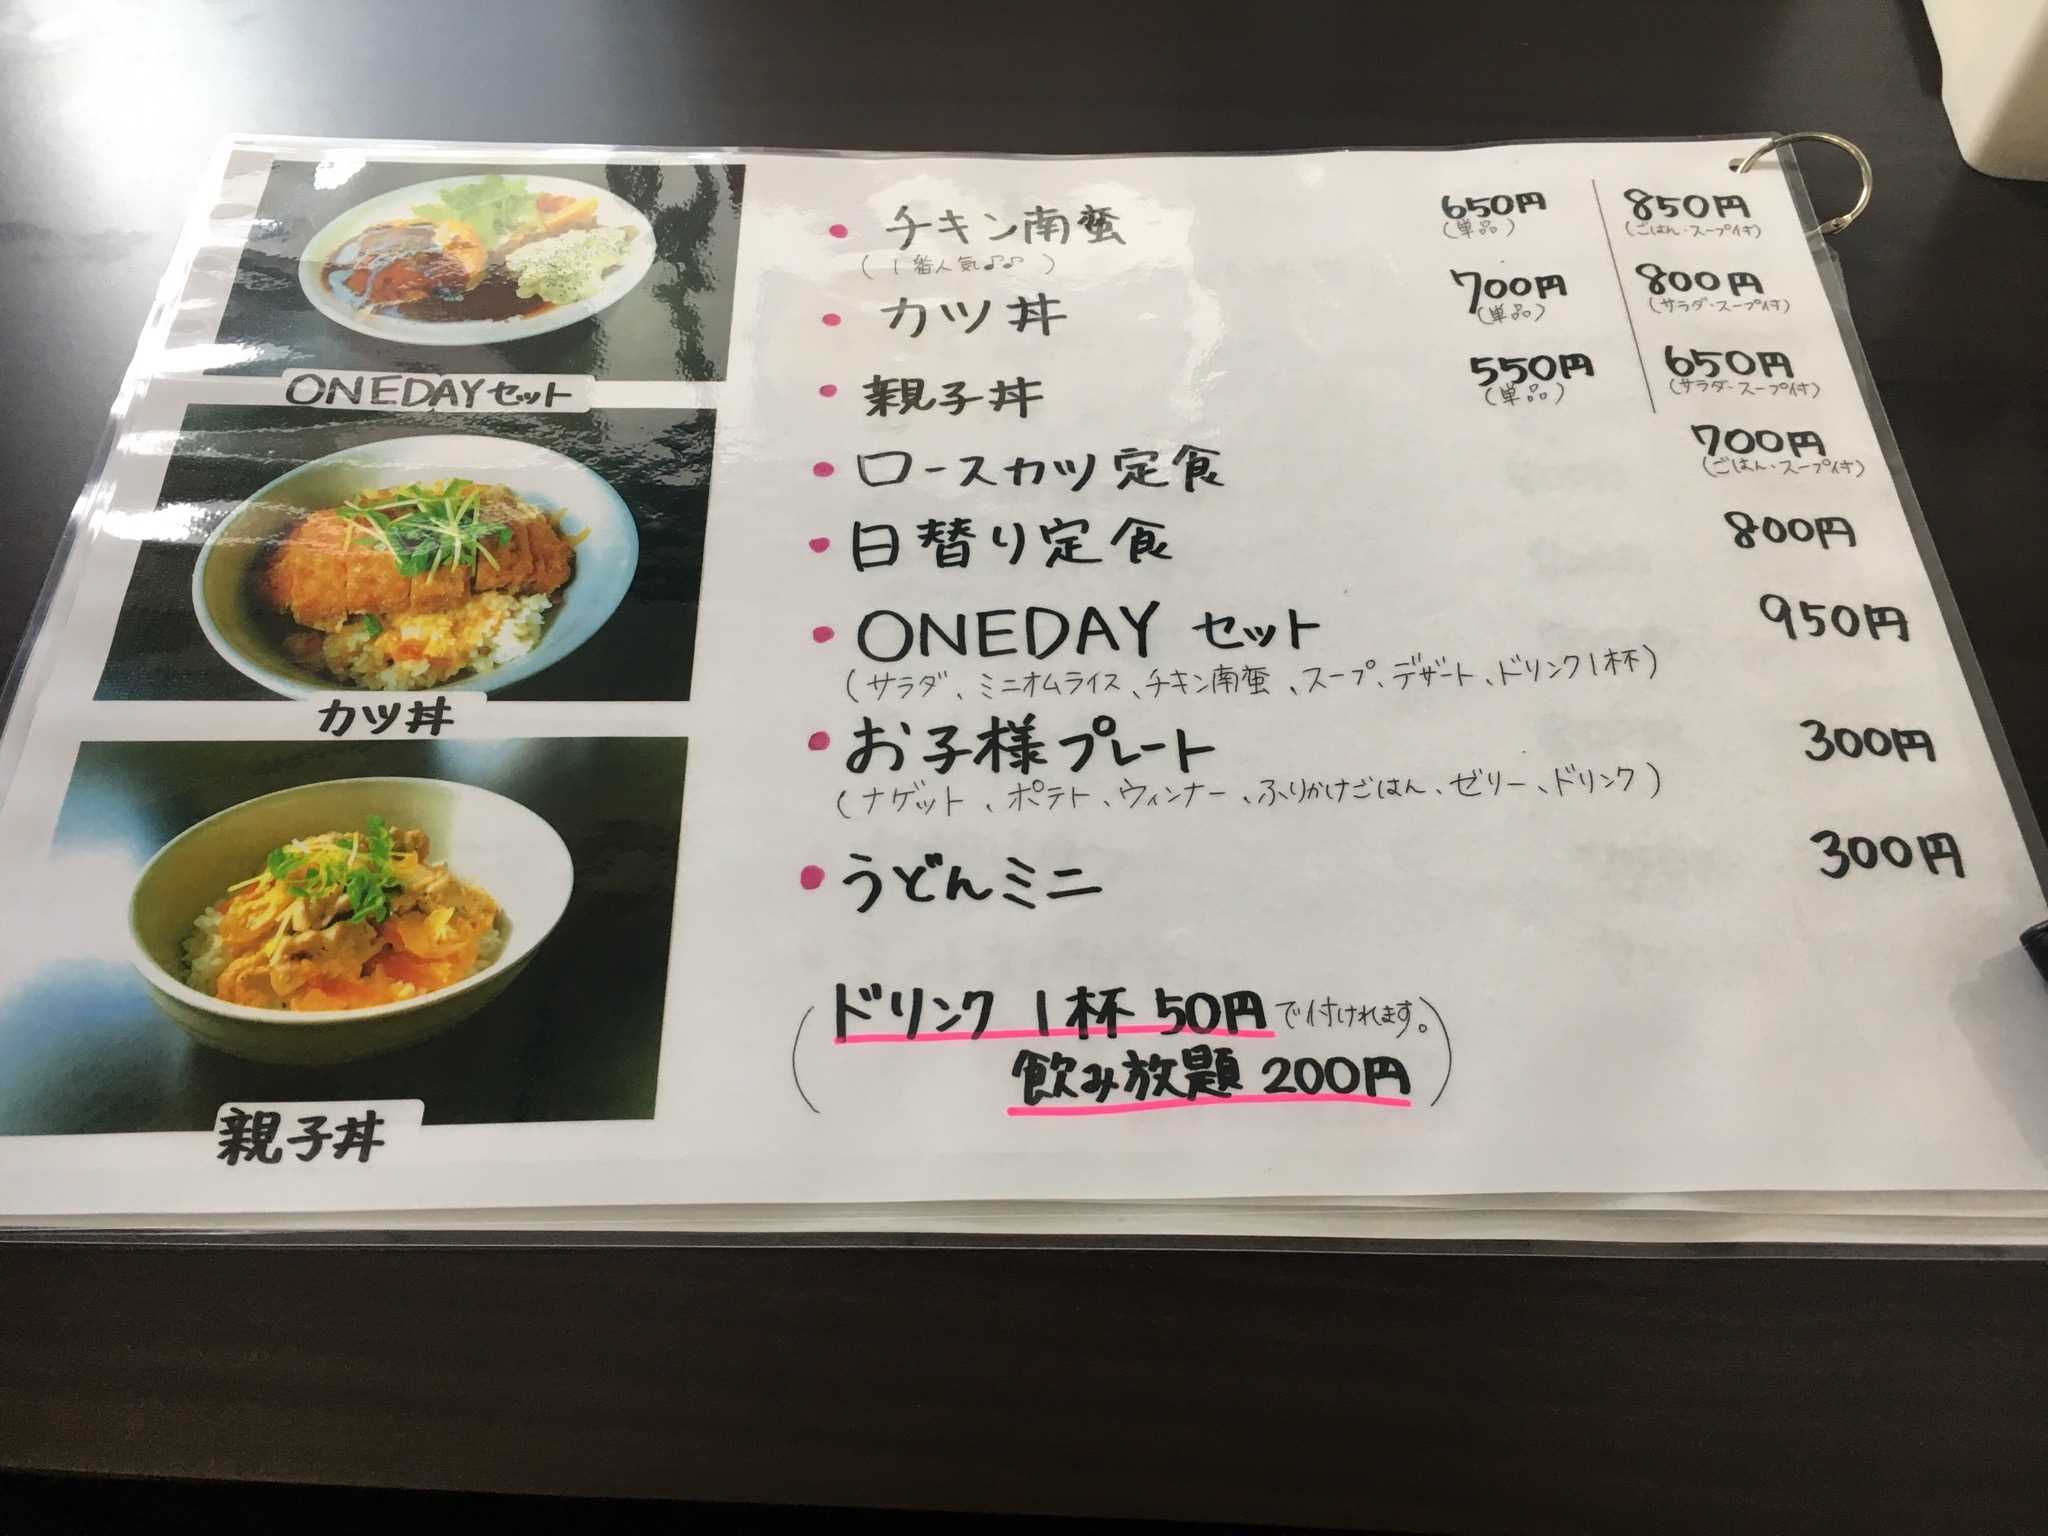 ONEDAYセット
カツ丼
親子丼
・チキン南蛮 650円 850円
(1番人気♪♪) (単品) (ごはん・スープ付)
・カツ丼 700円 800円
(単品) (サラダ・スープ付)
・親子丼 550円 650円
(単品) (サラダ・スープ付)
・ロースカツ定食 700円
(ごはん・スープ付)
・日替り定食 800円
・ONEDAY セット 950円
(サラダ、ミニオムライス、チキン南蛮、スープ、デザート、ドリンク1杯)
・お子様プレート 300円
(ナゲット、ポテト、ウィンナー、ふりかけごはん、ゼリー、ドリンク)
・うどんミニ 300円
(ドリンク 1杯 50円で付けれます。
飲み放題 200円)